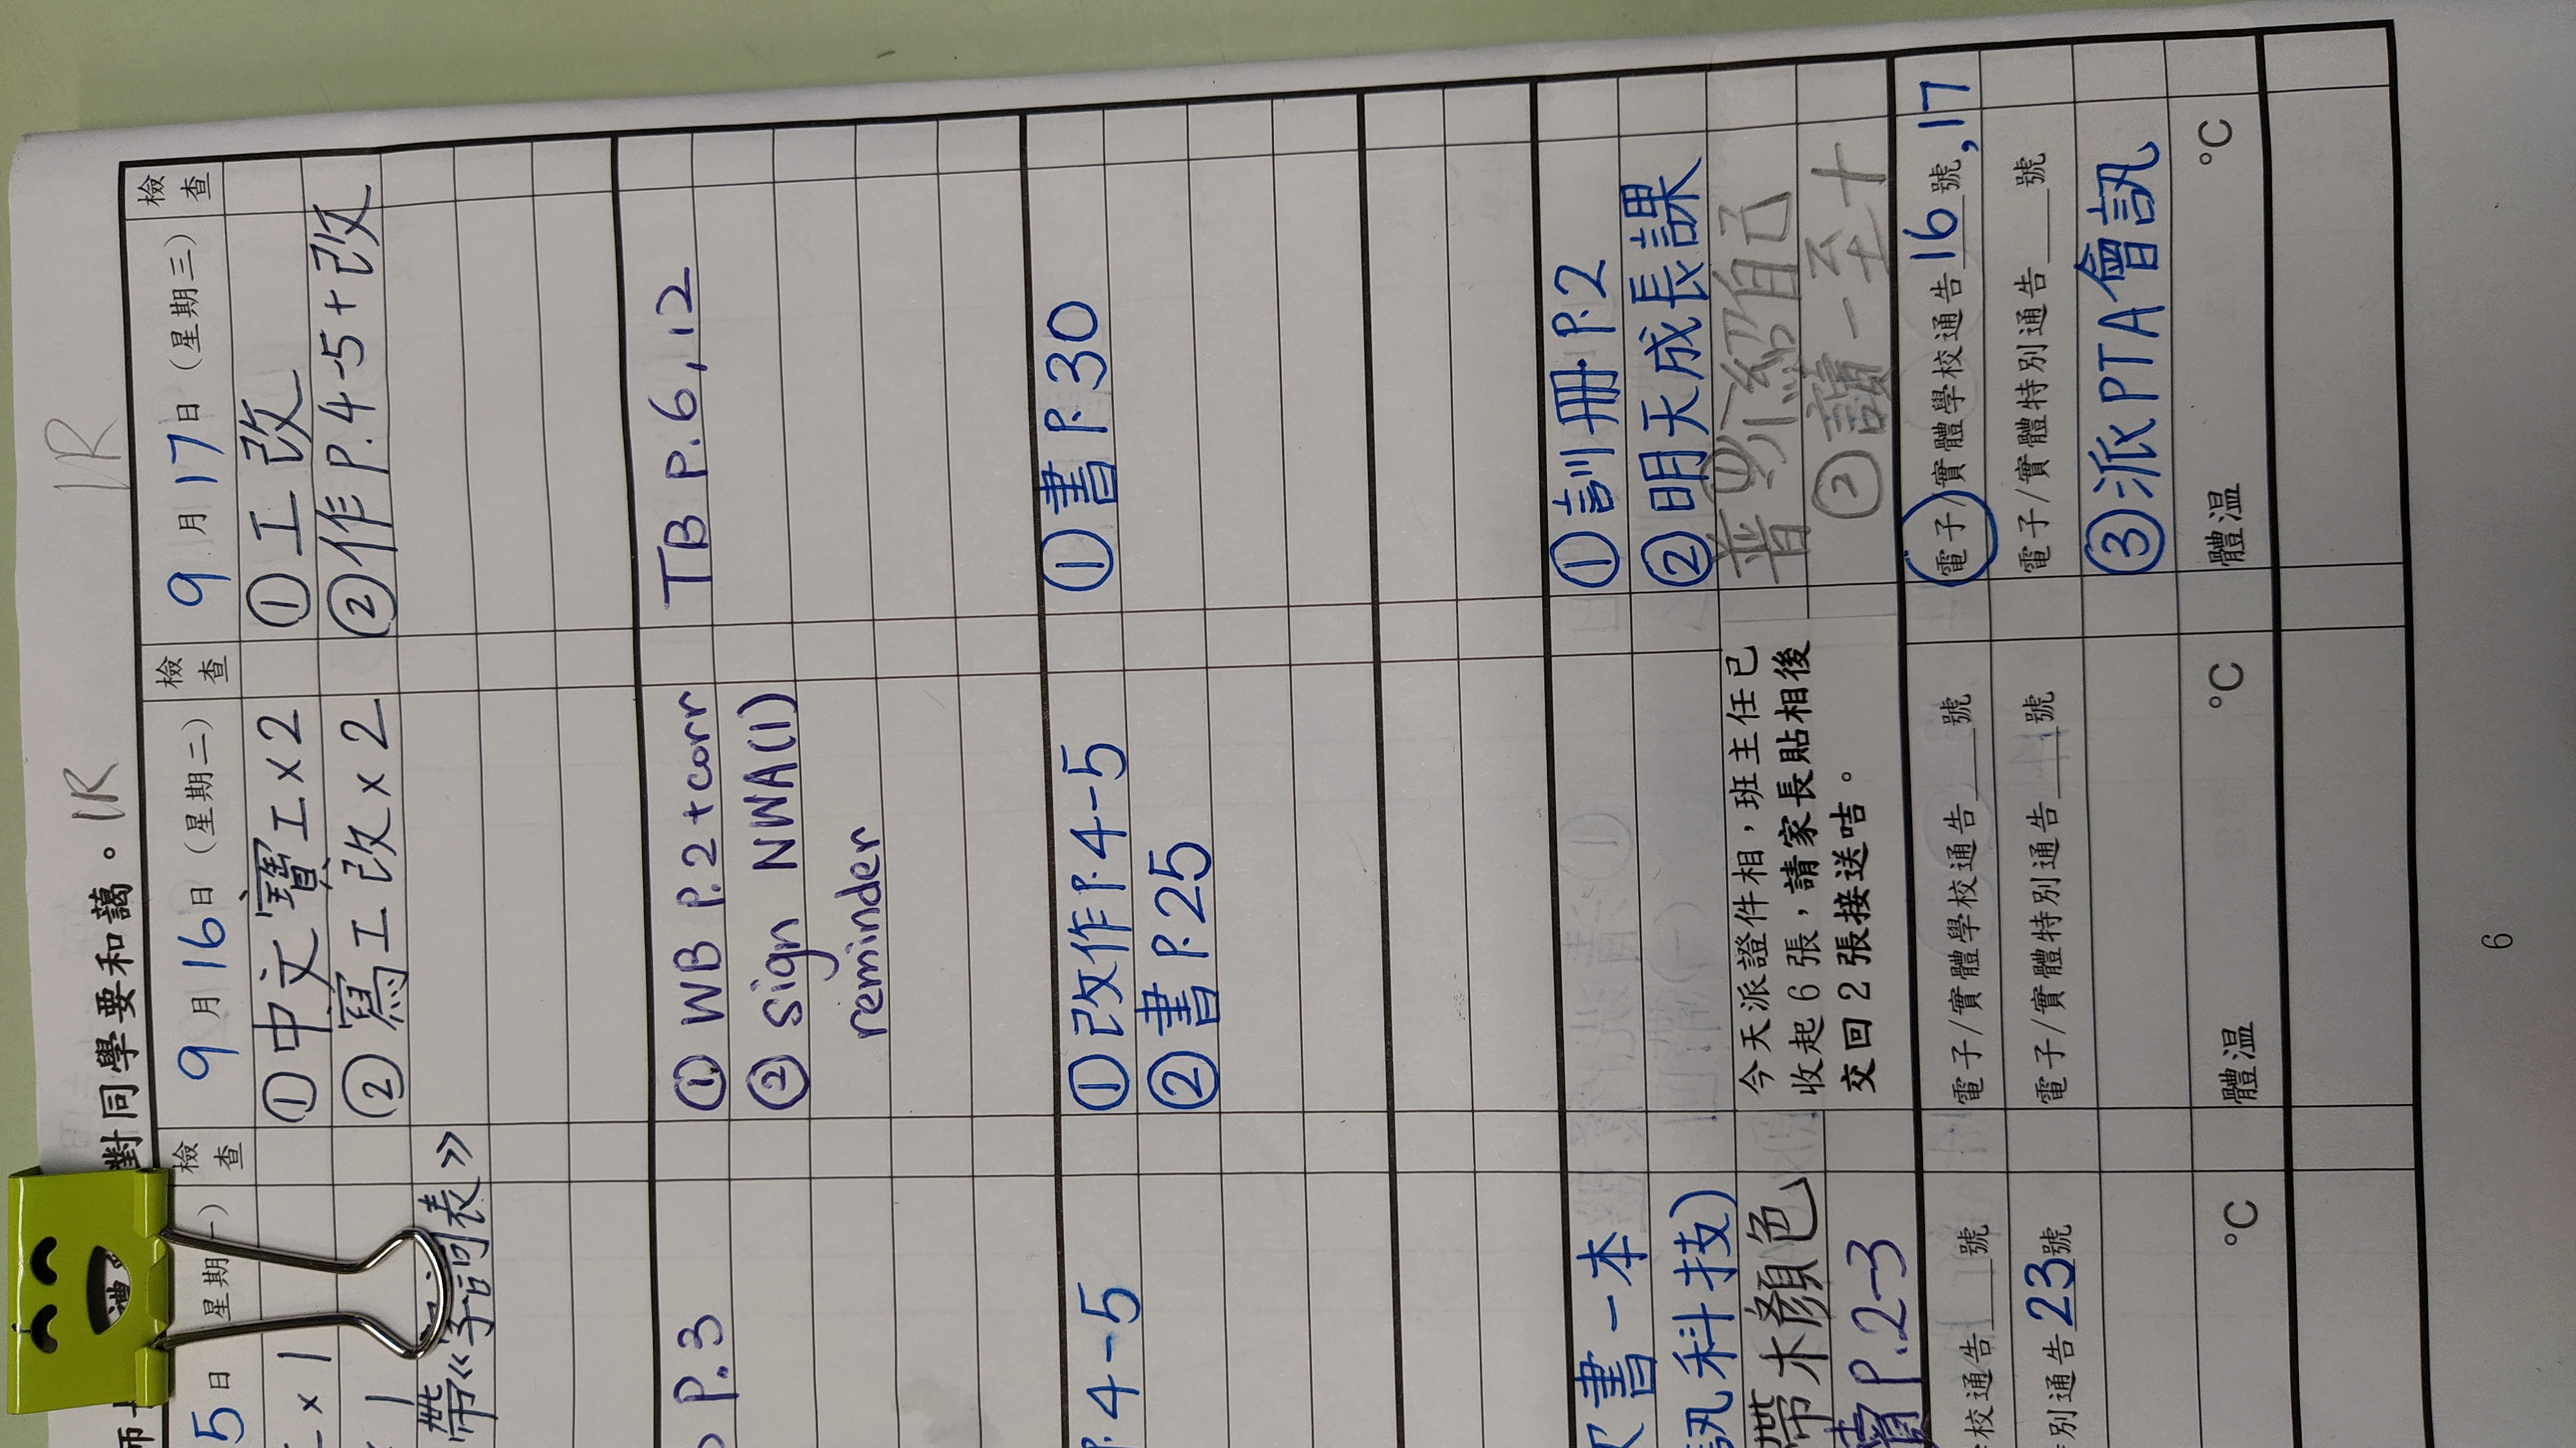 對同學要和藹。 1R 1R
5日 星期一） 檢查
x 1
帶《字詞表》
P.3
P.4-5
書一本
訊科技)
帶木顏色
P.2-3
校通告 號
別通告 23 號
°C
9月16日（星期二） 檢查
①中文寶工x2
②寫工改x2
① WB P.2+corr
② sign NWA(1)
reminder
①改作P.4-5
②書P.25
今天派證件相，班主任已
收起6張，請家長貼相後
交回2張接送咭。
電子/實體學校通告 號
電子/實體特別通告 號
體溫 °C
9月17日（星期三） 檢查
①工改
②作P.4-5+改
TB P.6,12
①書P.30
①訓冊P.2
②明天成長課
普①介紹自己
②讀一至十
電子/實體學校通告 16 號,17
電子/實體特別通告 號
③派PTA會訊
體溫 °C
6